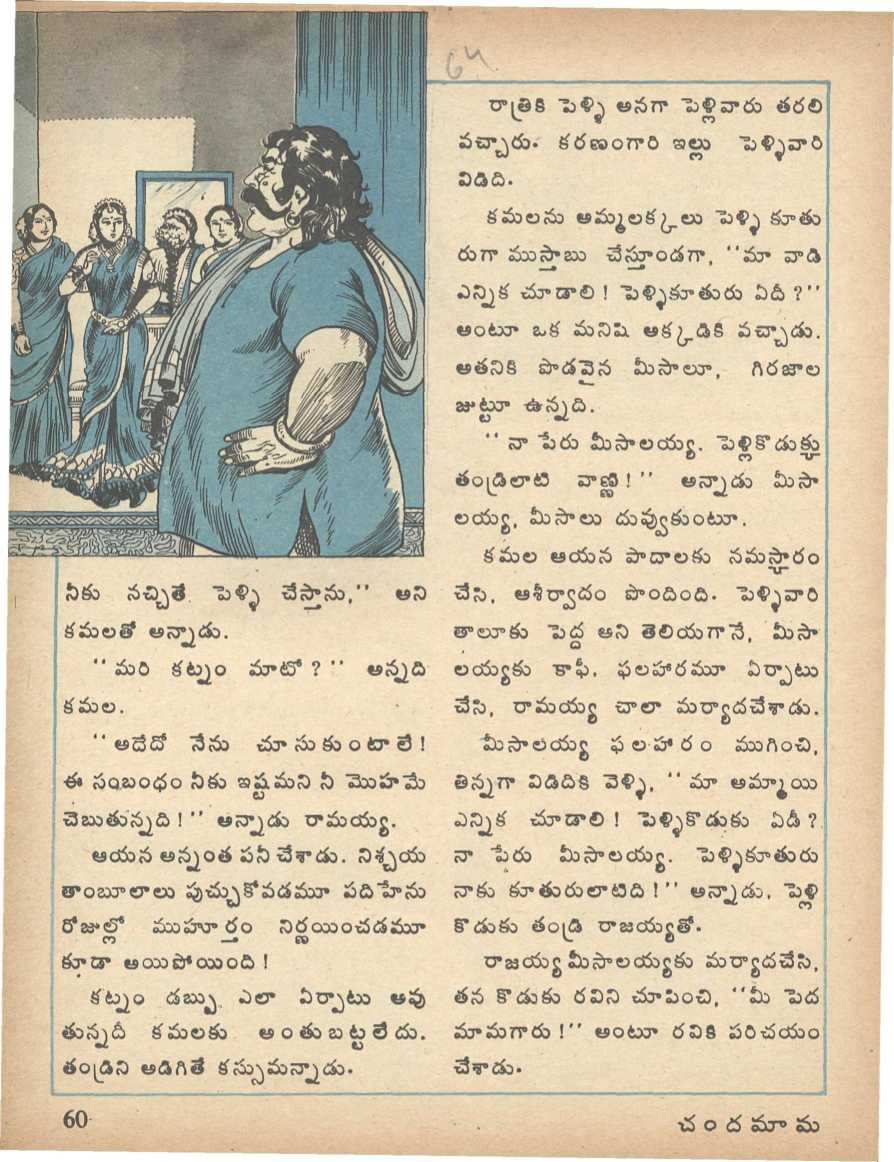 64
నీకు నచ్చితే పెళ్ళి చేస్తాను,'' అని
కమలతో అన్నాడు.
''మరి కట్నం మాటో?'' అన్నది
కమల.
''అదేదో నేను చూసుకుంటాలే!
ఈ సంబంధం నీకు ఇష్టమని నీ మొహమే
చెబుతున్నది!'' అన్నాడు రామయ్య.
ఆయన అన్నంత పనీ చేశాడు. నిశ్చయ
తాంబూలాలు పుచ్చుకోవడమూ పదిహేను
రోజుల్లో ముహూర్తం నిర్ణయించడమూ
కూడా అయిపోయింది!
కట్నం డబ్బు ఎలా ఏర్పాటు అవు
తున్నదీ కమలకు అంతుబట్టలేదు.
తండ్రిని అడిగితే కస్సుమన్నాడు.
రాత్రికి పెళ్ళి అనగా పెళ్లివారు తరలి
వచ్చారు. కరణంగారి ఇల్లు పెళ్ళివారి
విడిది.
కమలను అమ్మలక్కలు పెళ్ళి కూతు
రుగా ముస్తాబు చేస్తూండగా, ''మా వాడి
ఎన్నిక చూడాలి! పెళ్ళికూతురు ఏదీ?''
అంటూ ఒక మనిషి అక్కడికి వచ్చాడు.
అతనికి పొడవైన మీసాలూ, గిరజాల
జుట్టూ ఉన్నది.
''నా పేరు మీసాలయ్య. పెళ్లికొడుక్కు
తండ్రిలాటి వాణ్ణి!'' అన్నాడు మీసా
లయ్య, మీసాలు దువ్వుకుంటూ.
కమల ఆయన పాదాలకు నమస్కారం
చేసి, ఆశీర్వాదం పొందింది. పెళ్ళివారి
తాలూకు పెద్ద అని తెలియగానే, మీసా
లయ్యకు కాఫీ, ఫలహారమూ ఏర్పాటు
చేసి, రామయ్య చాలా మర్యాదచేశాడు.
మీసాలయ్య ఫలహారం ముగించి,
తిన్నగా విడిదికి వెళ్ళి, ''మా అమ్మాయి
ఎన్నిక చూడాలి! పెళ్ళికొడుకు ఏడీ?
నా పేరు మీసాలయ్య. పెళ్ళికూతురు
నాకు కూతురులాటిది!'' అన్నాడు, పెళ్లి
కొడుకు తండ్రి రాజయ్యతో.
రాజయ్య మీసాలయ్యకు మర్యాదచేసి,
తన కొడుకు రవిని చూపించి, ''మీ పెద
మామగారు!'' అంటూ రవికి పరిచయం
చేశాడు.
60
చందమామ